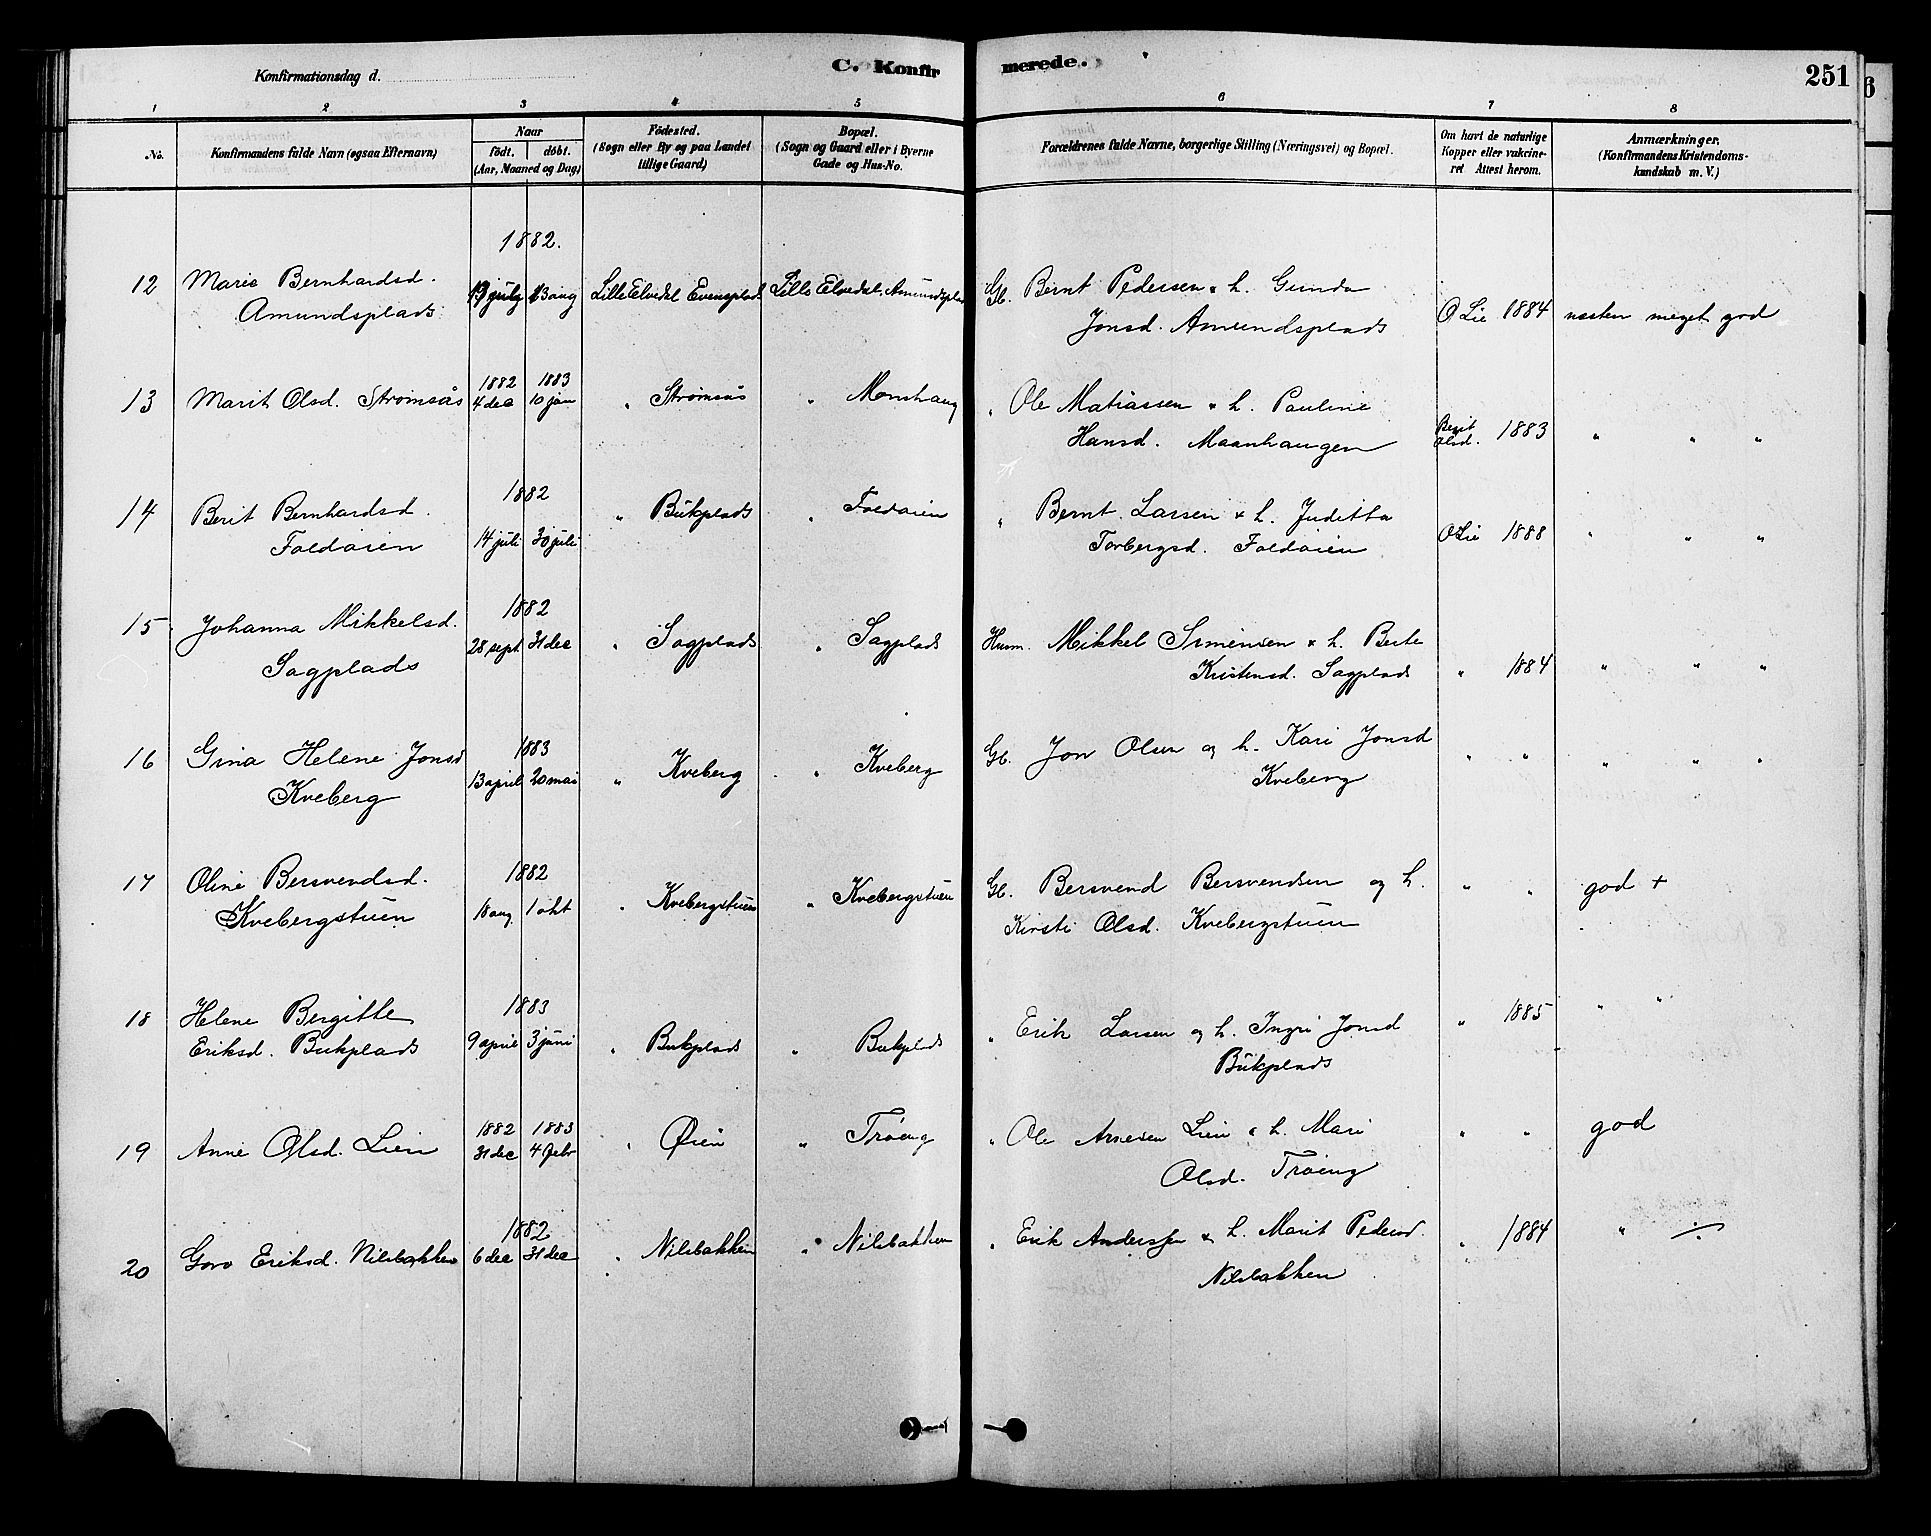 Konfirmationsdag d.
C. Konfirmerede.
251
1 2 3 4 5 6 7 8
No.
Konfirmandens fulde Navn (ogsaa Efternavn)
Naar
födt. döbt.
(Aar, Maaned og Dag)
Födested.
(Sogn eller By og paa Landet
tillige Gaard)
Bopæl.
(Sogn og Gaard eller i Byerne
Gade og Hus-No.
Forældrenes fulde Navne, borgerlige Stilling (Næringsvei) og Bopæl.
Om havt de naturlige
Kopper eller vakcine-
ret Attest herom.
Anmærkninger.
(Konfirmandens Kristendoms-
kundskab m. V.)
1882.
12 Marie Bernhardsd. 19 july 13 aug Lille Elvedal Evensplads Lille Elvedal, Amundsplad Gb. Bernt Pedersen & h. Gunda
Amundsplads Jonsd. Amundsplads O Lie 1884 næsten meget god
1882 1883
13 Marit Olsd. Strømsås 4 dec 10 jan " Strømsås " Monshaug " Ole Matiassen & h. Pauline
Hansd. Maanhaugen Berit Olsd. 1883 " " "
1882
14 Berit Bernhardsd. " Bukplads " Foldaien " Bernt Larsen & h. Juditta
Foldøien 14 juli 30 juli Torbergsd. Foldøien O Lie 1888 " " "
1882
15 Johanna Mikkelsd. 28 sept 31 dec " Sagplads " Sagplads Husm. Mikkel Simensen & h. Berte
Sagplads Kristensd. Sagplads " 1884 " " "
1883
16 Gina Helene Jonsd 13 april 20 mai " Kveberg " Kveberg Gb. Jon Olsen og h. Kari Jonsd
Kveberg Kveberg " " " " "
1882
17 Oline Bersvendsd. 18 aug 1 okt " Kvebergstuen " Kvebergstuen Gb. Bersvend Bersvendsen og h. " " god +
Kvebergstuen Kirsti Olsd. Kvebergstuen
1883
18 Helene Bergitte 9 april 3 juni " Bukplads " Bukplads " Erik Larsen og h. Ingri Jonsd " 1885 " "
Eriksd. Bukplads Bukplads
1882 1883
19 Anne Olsd. Lien 31 dec 4 febr " Øien " Trøeng " Ole Arnesen Lien & h. Mari " " god
Olsd. Trøeng
1882
20 Goro Eriksd. Nilsbakken 6 dec 31 dec " Nilsbakken " Nilsbakken " Erik Anderssen & h. Marit Pedersd. " 1884 " ÷
Nilsbakken